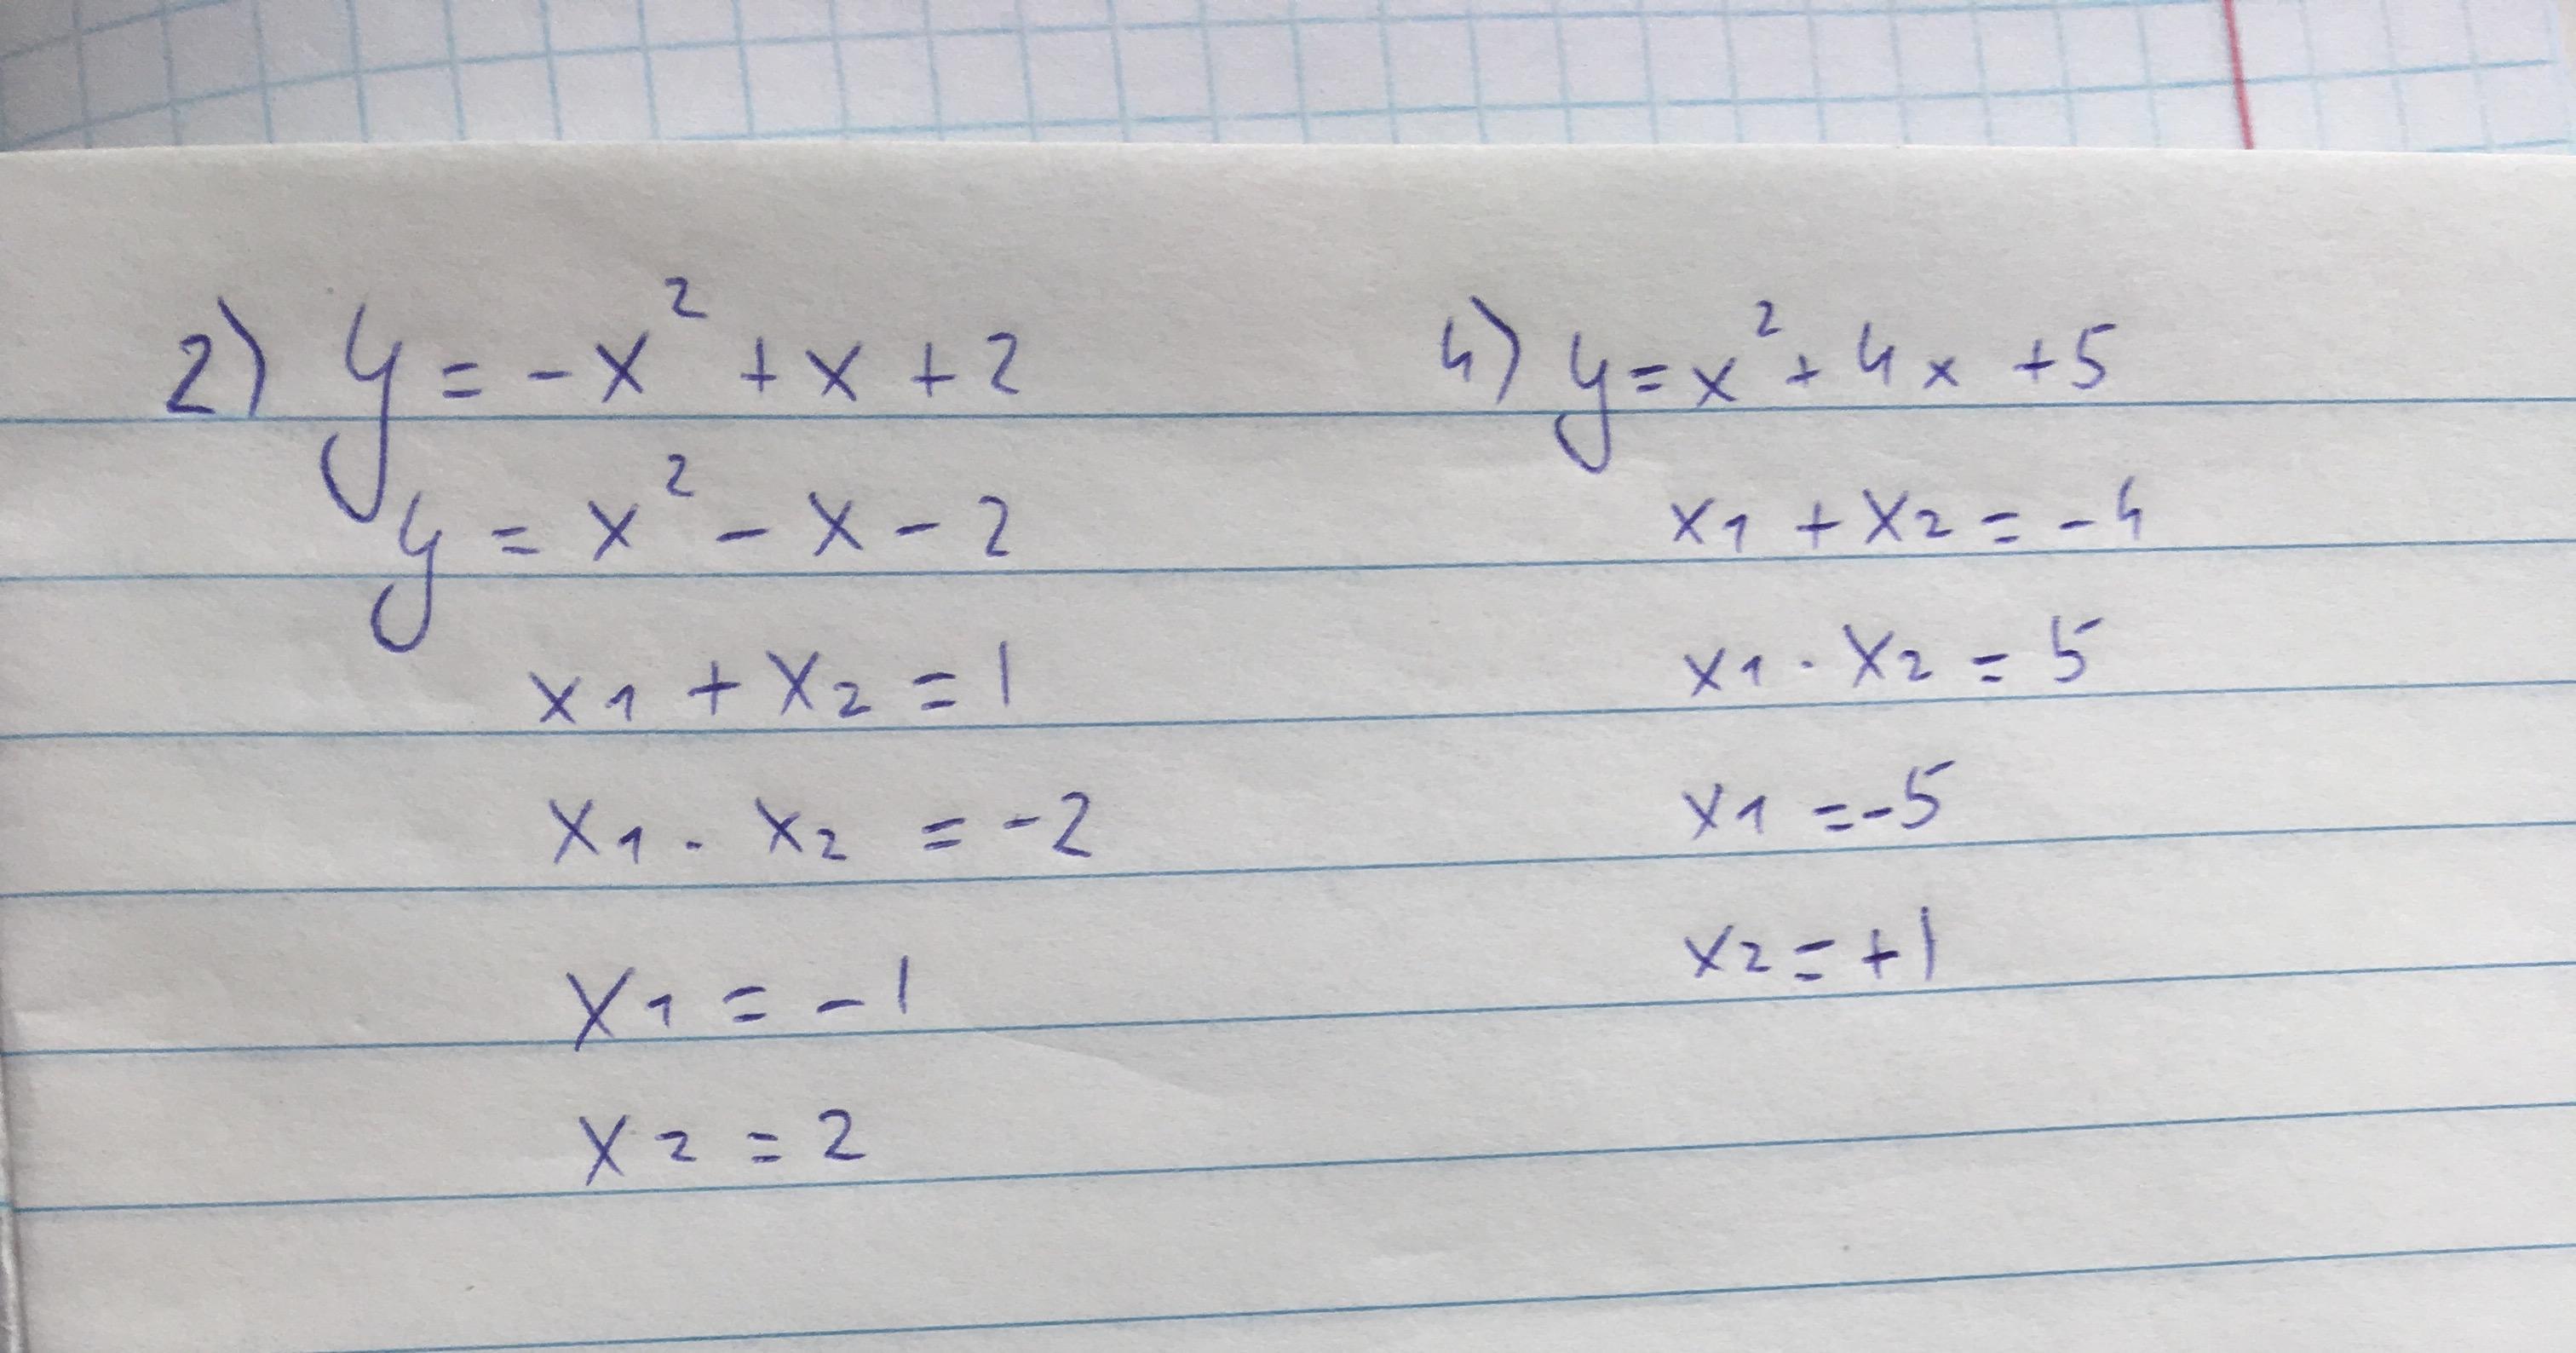 2) y = -x² + x + 2
y = x² - x - 2
x₁ + x₂ = 1
x₁ · x₂ = -2
x₁ = -1
x₂ = 2
4) y = x² + 4x + 5
x₁ + x₂ = -4
x₁ · x₂ = 5
x₁ = -5
x₂ = +1